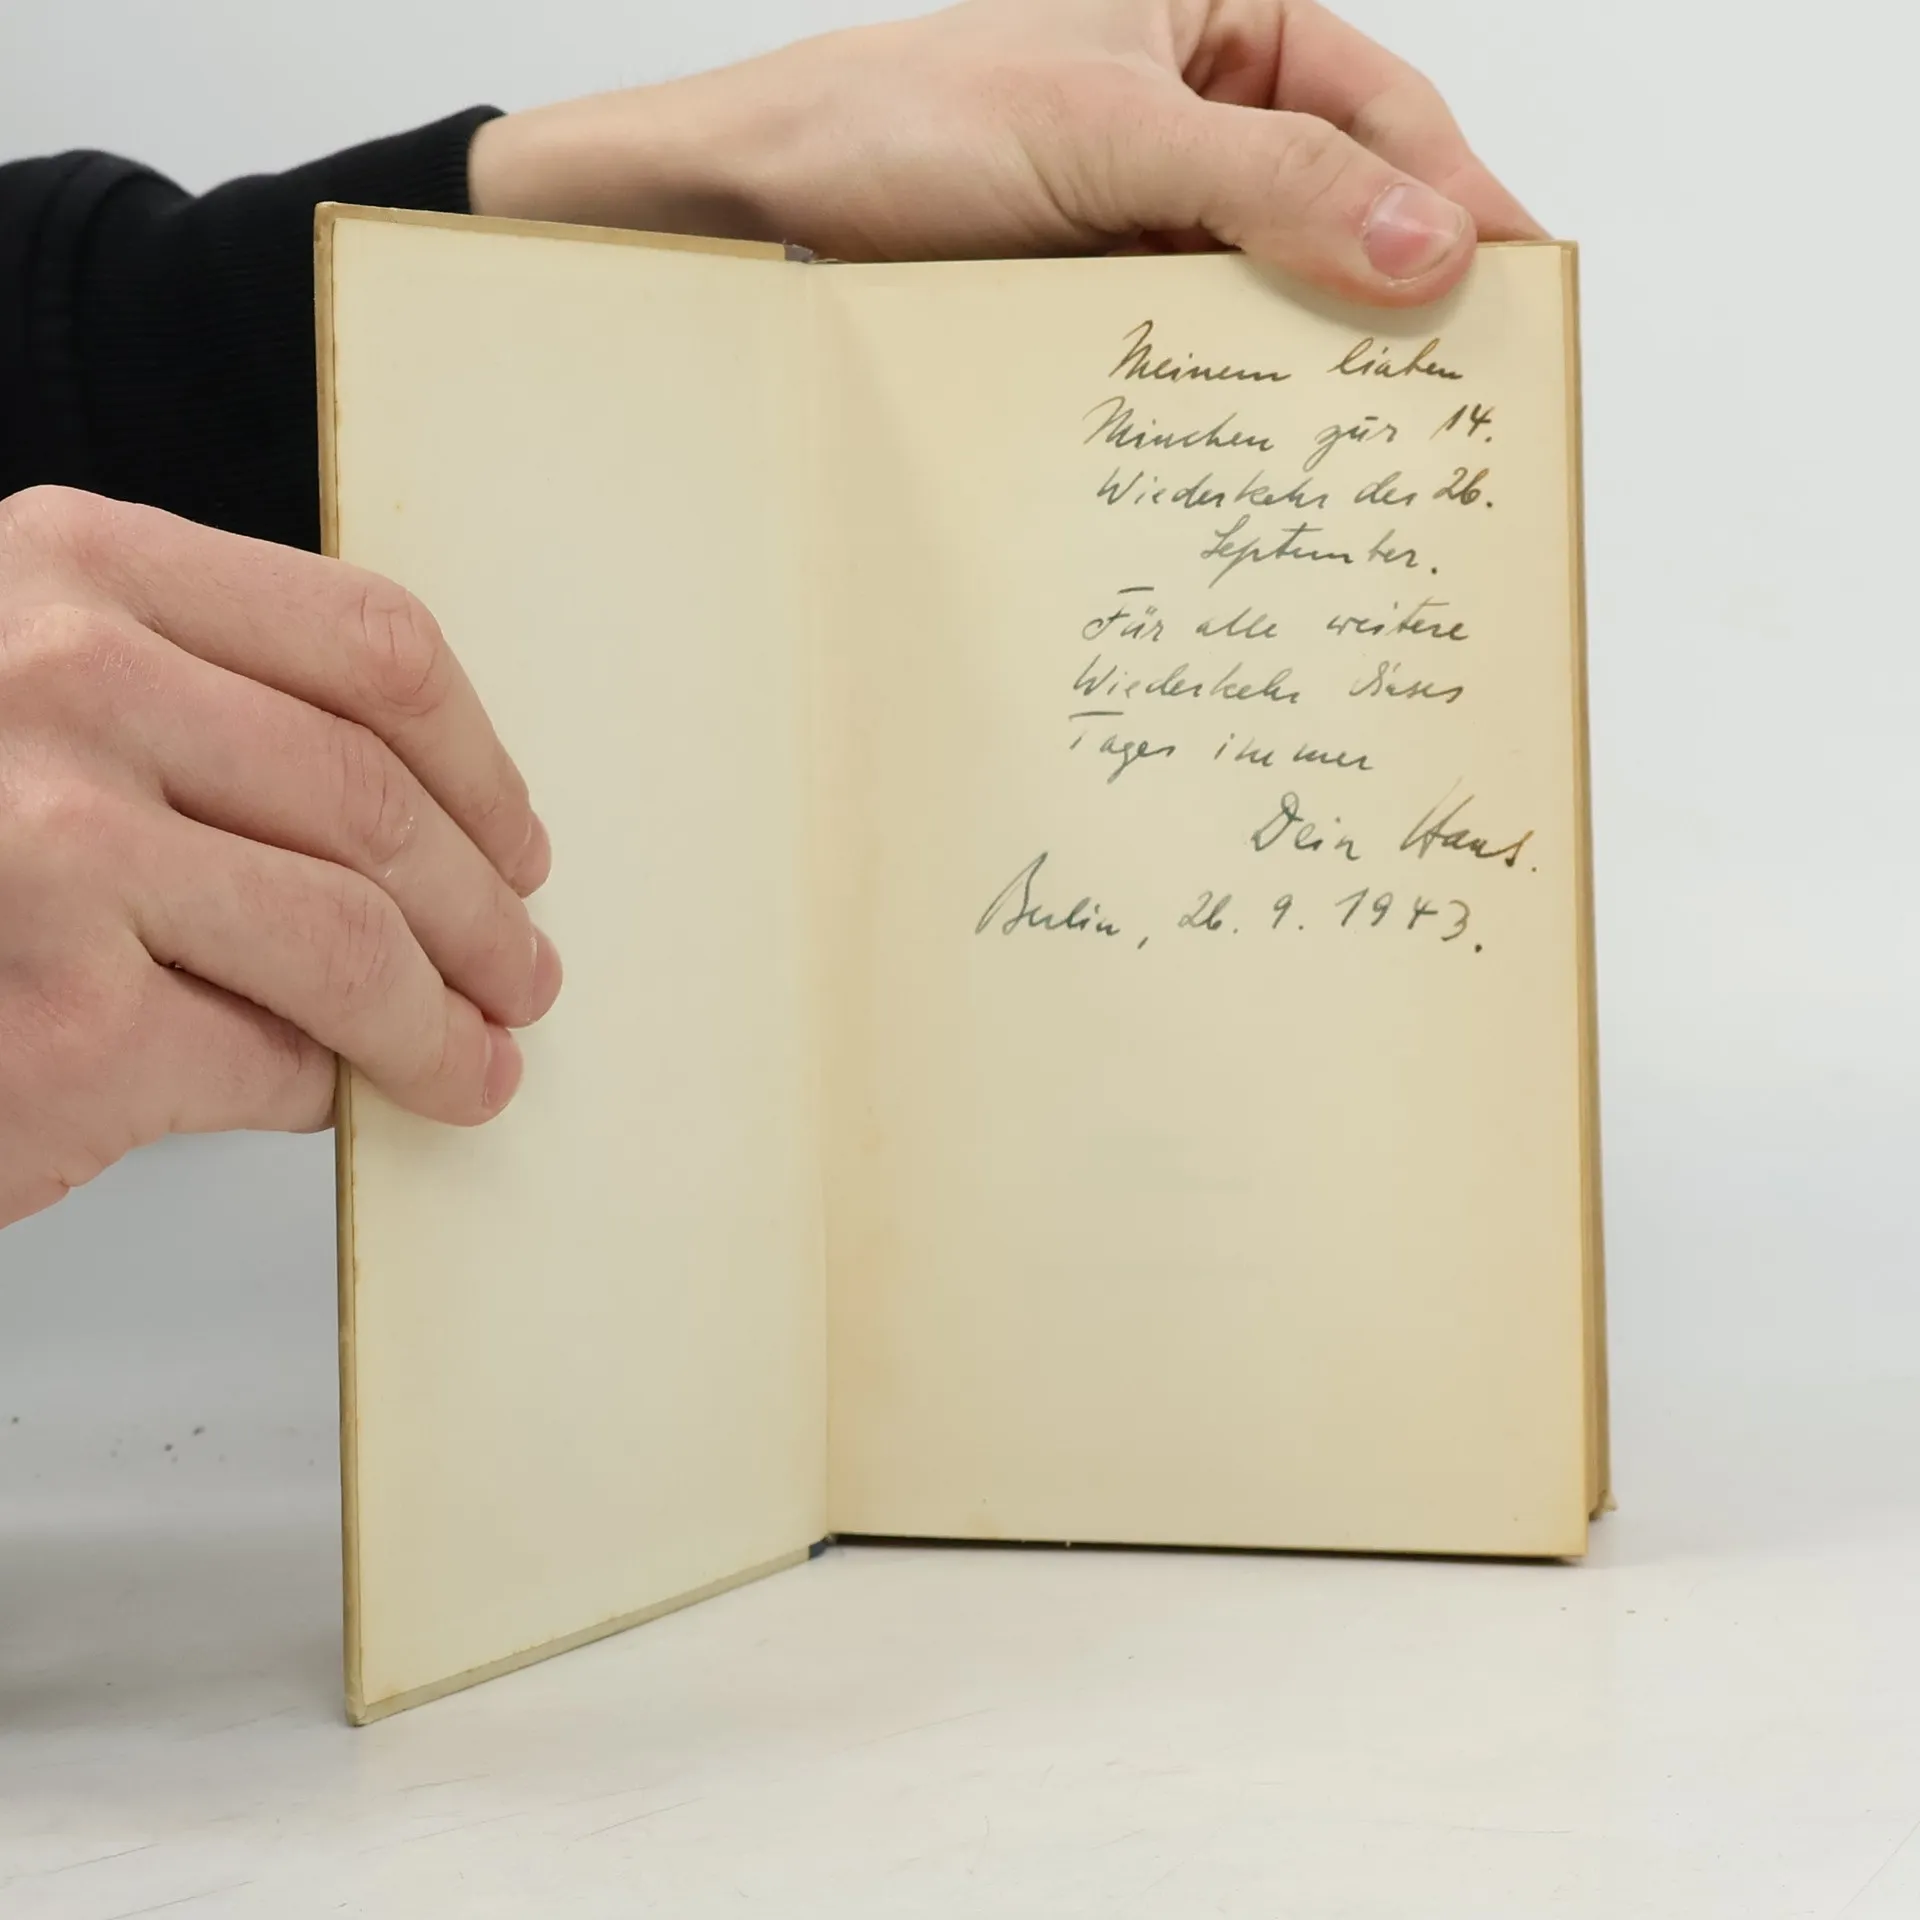 Meinem lieben
Minchen zur 14.
Wiederkehr des 26.
September.
Für alle weitere
Wiederkehr dieses
Tages immer
Dein Hans.
Berlin, 26. 9. 1943.